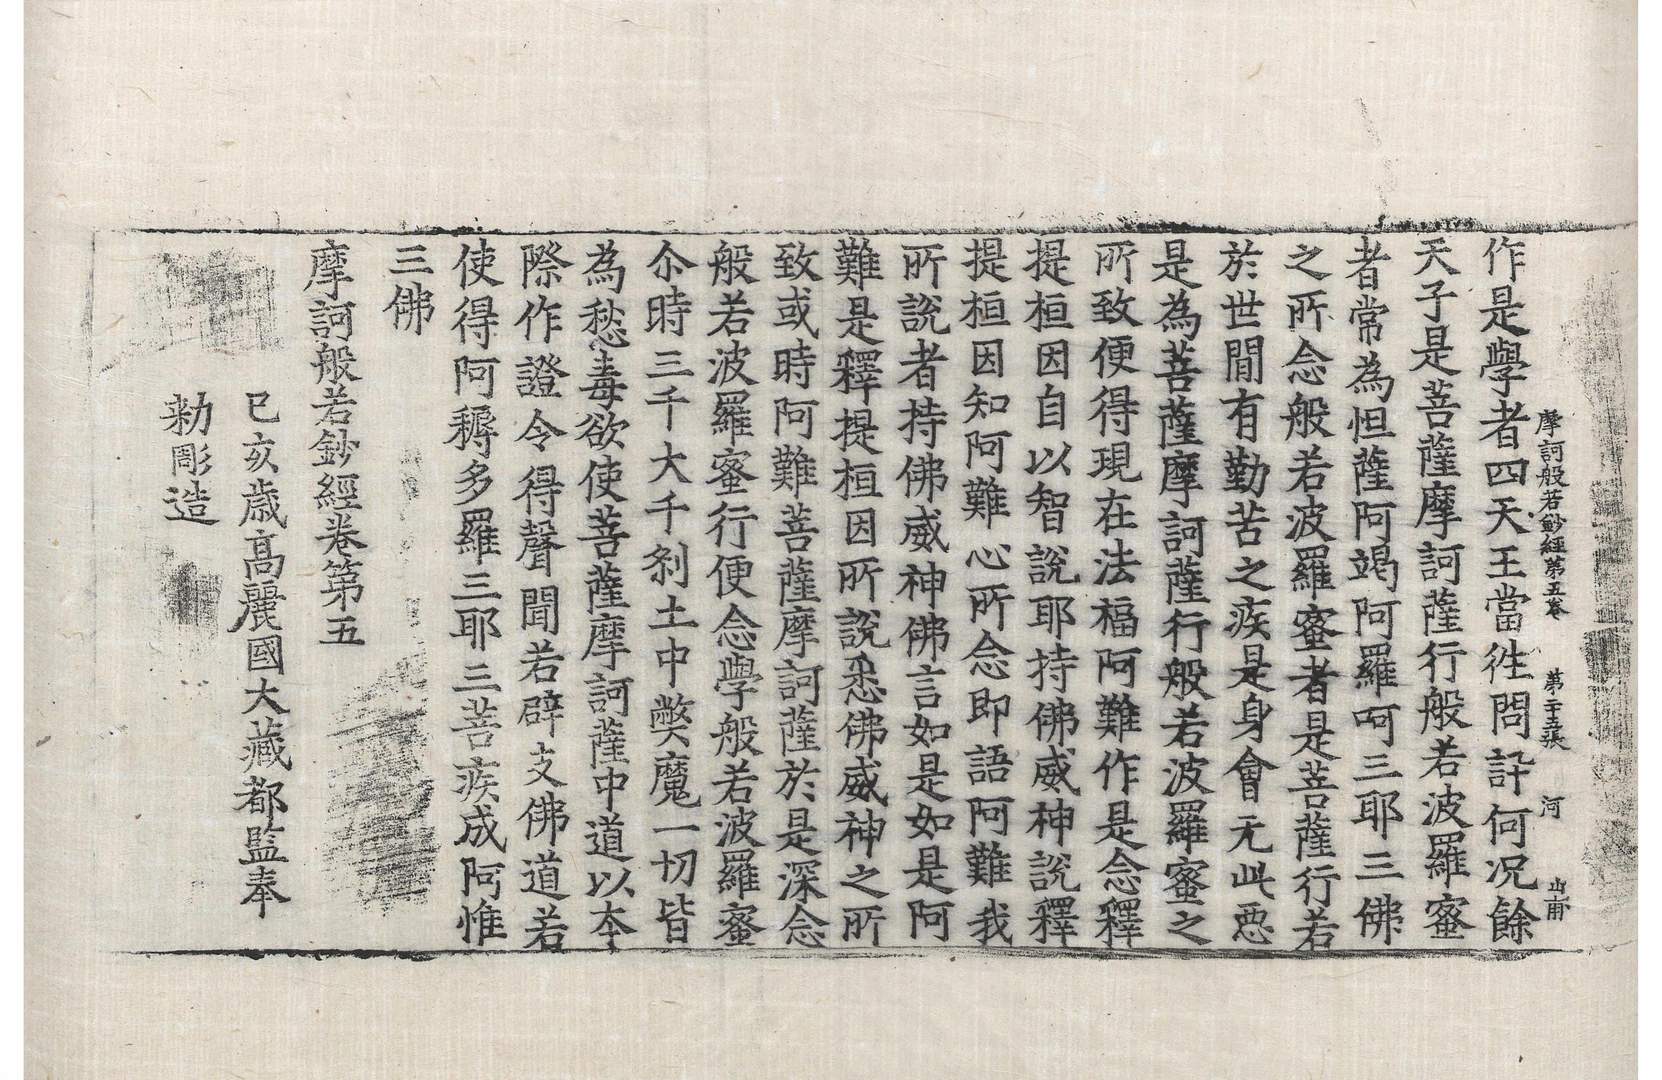 摩訶般若鈔經第五卷 第二十五張 河 山甫
作是學者四天王當徃問訊何況餘
天子是菩薩摩訶薩行般若波羅蜜
者常為怛薩阿竭阿羅呵三耶三佛
之所念般若波羅蜜者是菩薩行若
於世間有勤苦之疾是身會无此惡
是為菩薩摩訶薩行般若波羅蜜之
所致便得現在法福阿難作是念釋
提桓因自以智說耶持佛威神說釋
提桓因知阿難心所念即語阿難我
所說者持佛威神佛言如是如是阿
難是釋提桓因所說悉佛威神之所
致或時阿難菩薩摩訶薩於是深念
般若波羅蜜行便念學般若波羅蜜
尒時三千大千剎土中弊魔一切皆
為愁毒欲使菩薩摩訶薩中道以本
際作證令得聲聞若辟支佛道若
使得阿耨多羅三耶三菩疾成阿惟
三佛
摩訶般若鈔經卷第五
己亥歲高麗國大藏都監奉
勑彫造